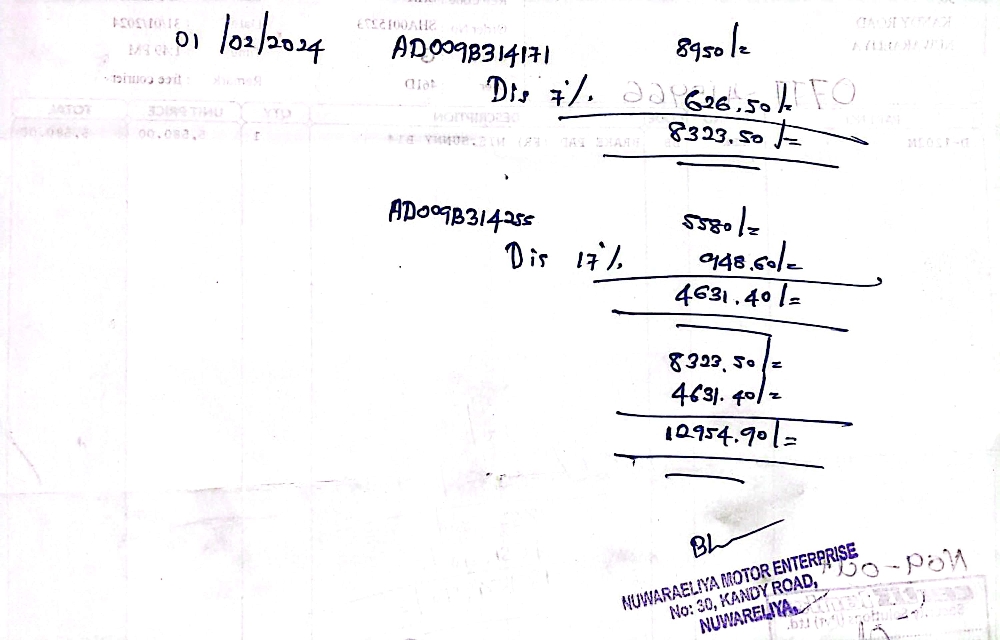 01/02/2024 AD009B314171 8950/=
Dis 7%. 626.50/=
8323.50/=
AD009B314255 5580/=
Dis 17%. 948.60/=
4631.40/=
8323.50/=
4631.40/=
12954.90/=
NUWARAELIYA MOTOR ENTERPRISE
No: 30, KANDY ROAD,
NUWARELIYA.